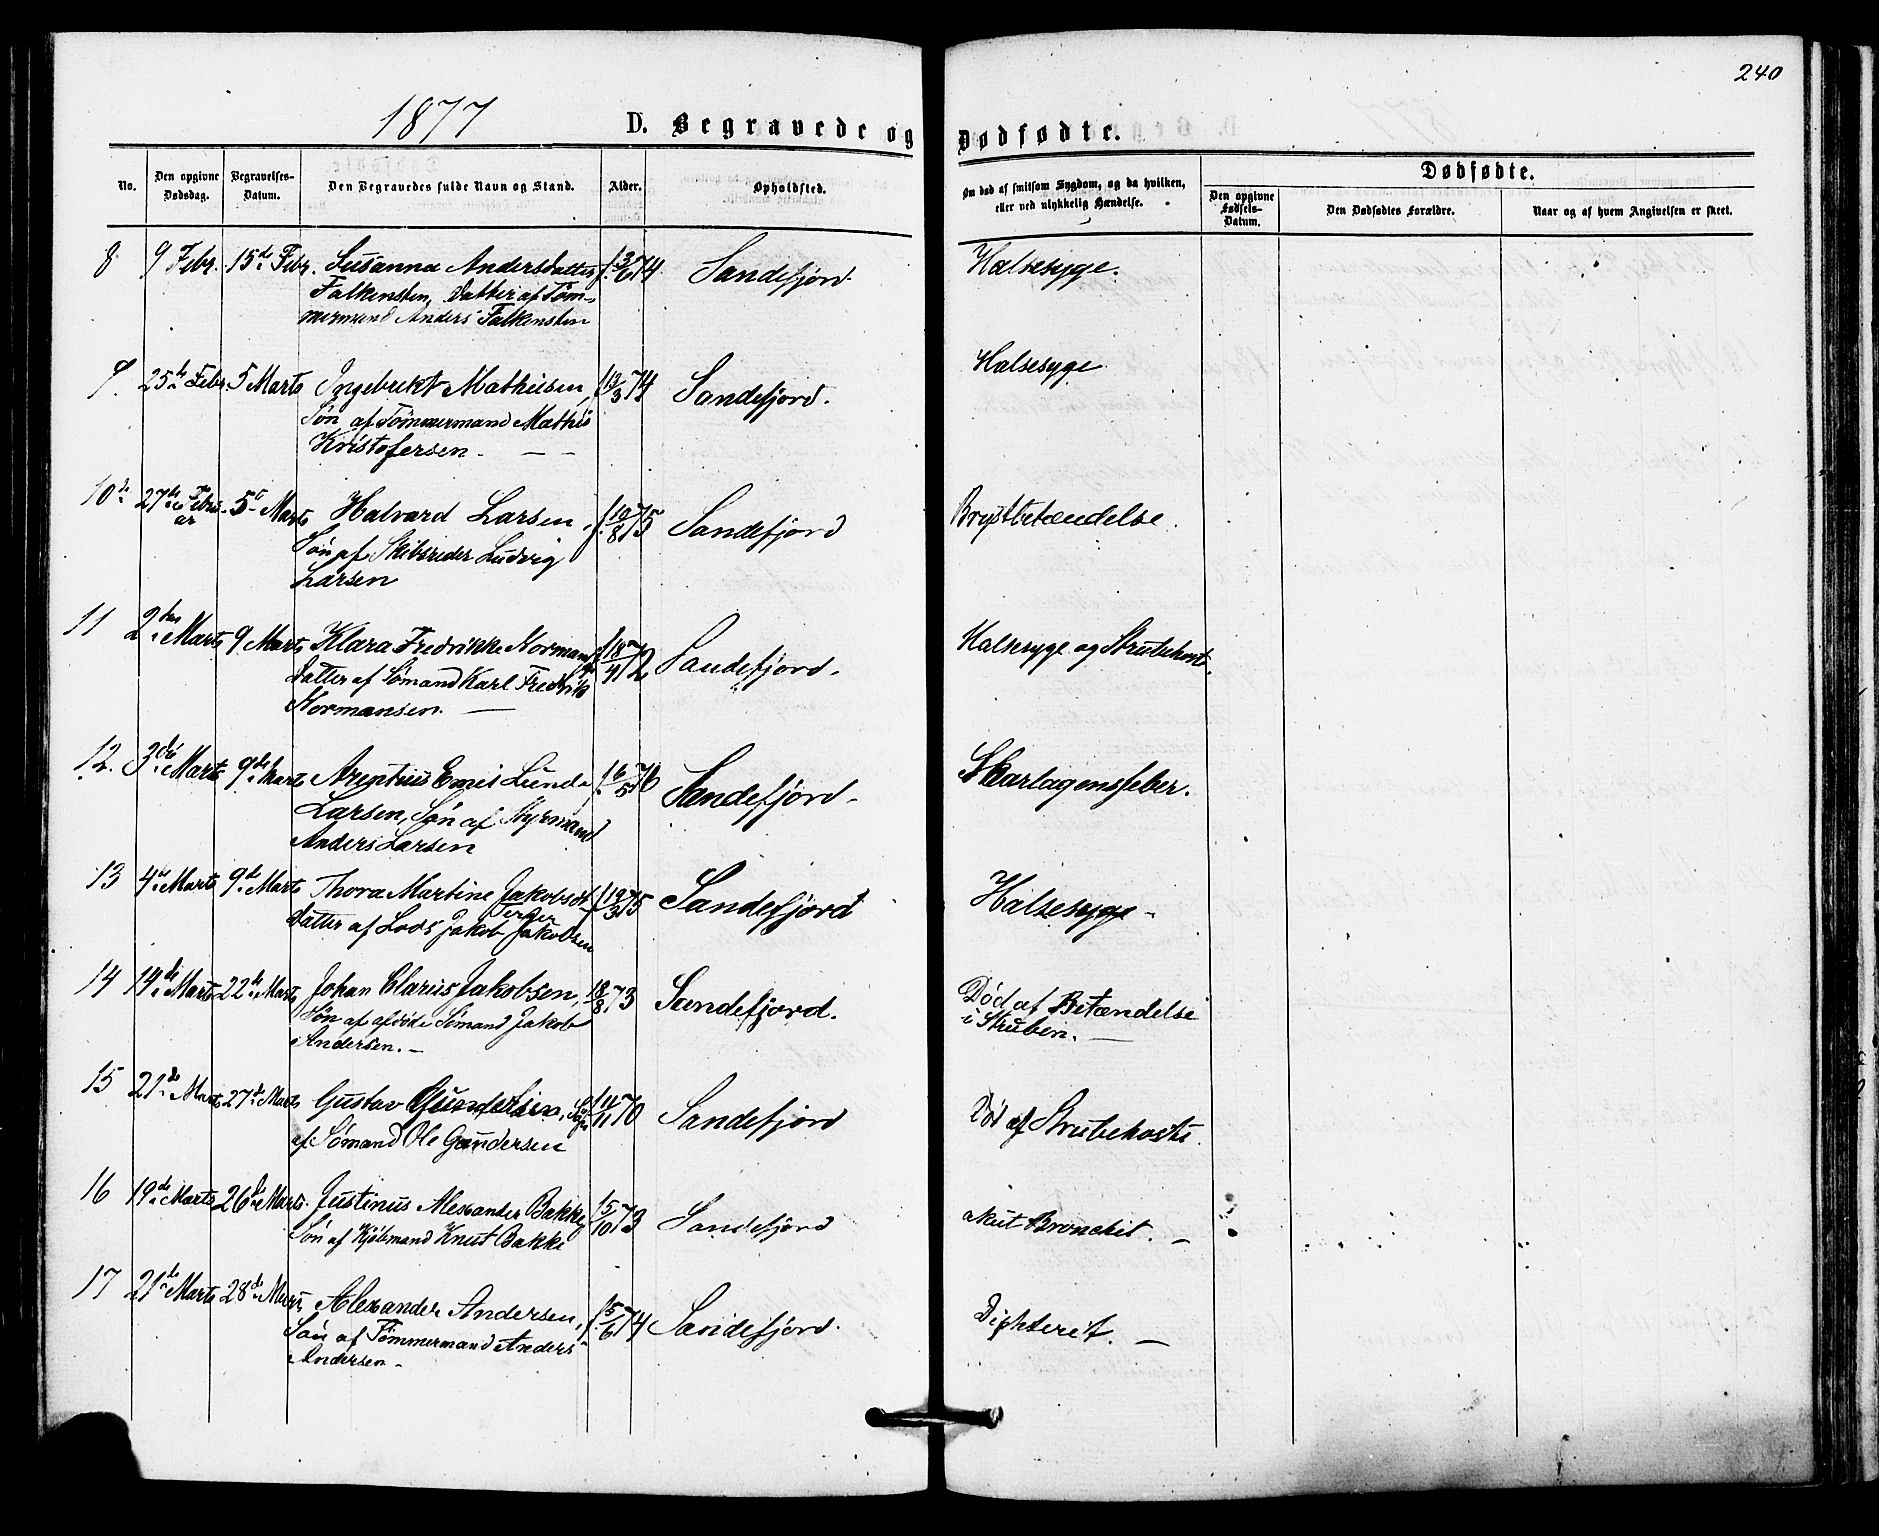 240
1877
D. Begravede og Dødfødte.
No.
Den opgivne Dødsdag.
Begravelses-Datum.
Den Begravedes fulde Navn og Stand.
Alder.
Opholdsted.
Om død af smitsom Sygdom, og da hvilken, eller ved ulykkelig Hændelse.
Dødfødte.
Den opgivne Fødsels-Datum.
Den Dødfødtes Forældre.
Naar og af hvem Angivelsen er skeet.
8 9 Febr. 15de Febr. Susanna Andersdatter f. 3/6 74 Sandefjord Halsesyge.
Falkensten, Datter af Töm-
mermand Anders Falkensten
9. 25de Febr. 5 Marts Ingebrekt Mathisen, f 12/3 74 Sandefjord. Halsesyge
Sön af Tömmermand Mathis
Kristofersen
10de 27de Febru- 5 Marts Halvard Larsen, f. 10/8 75 Sandefjord Brystbetændelse.
ar Sön af Skibsreder Ludvig
Larsen
11 2den Marts 9 Marts Klara Fredrikke Normans f. 18/4 72 Sandefjord. Halsesyge og Strubehoste
Datter af Sömand Karl Fredrik
Normansen.
12. 3die Marts 9de Marts Emil Lunde f. 6/5 76 Sandefjord. Skarlagensfeber.
Larsen, Sön af Styrmand
Anders Larsen
13 4de Marts 9de Marts Thora Martine Jakobsdt f. 19/3 75 Sandefjord Halsesyge
Datter af Lods Jakob Jakobsen
14 14de Marts 22de Marts Johan Clarius Jakobsen, 18/8 73 Sandefjord. Död af Betændelse
Sön af afdöde Sömand Jakob i Struben.
Andersen.
15 21de Marts 27de Marts Gustav Gundersen, Sön f. 11/11 70 Sandefjord Död af Strubehoste.
af Sömand Ole Gundersen
16 19de Marts 26de Marts. Justinus Alexander Bakke f. 5/10 73 Sandefjord akut Bronchit.
Sön af Kjöbmand Knut Bakke
17 21de Marts 28de Marts Alexander Andersen, f. 5/6 74 Sandefjord. Diphterit.
Sön af Tömmermand Anders
Andersen